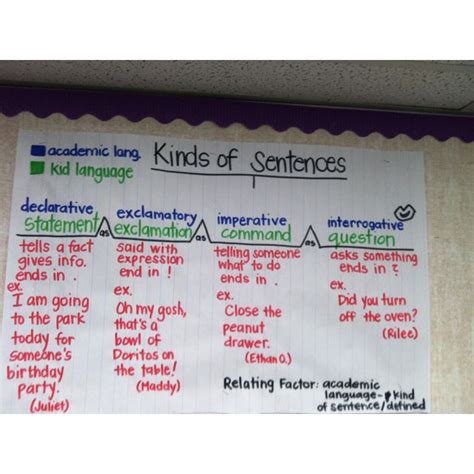 Kinds of Sentences
academic lang.
kid language
declarative
statement
tells a fact
gives info.
ends in .
ex.
I am going
to the park
today for
someone's
birthday
party.
(Juliet)
as
exclamatory
exclamation
said with
expression
end in !
ex.
Oh my gosh,
that's a
bowl of
Doritos on
the table!
(Maddy)
as
imperative
command
telling someone
what to do
ends in .
ex.
Close the
peanut
drawer.
(Ethan O.)
as
interrogative
question
asks something
ends in ?
ex.
Did you turn
off the oven?
(Rilee)
Relating Factor: academic
language- kind
of sentence/defined